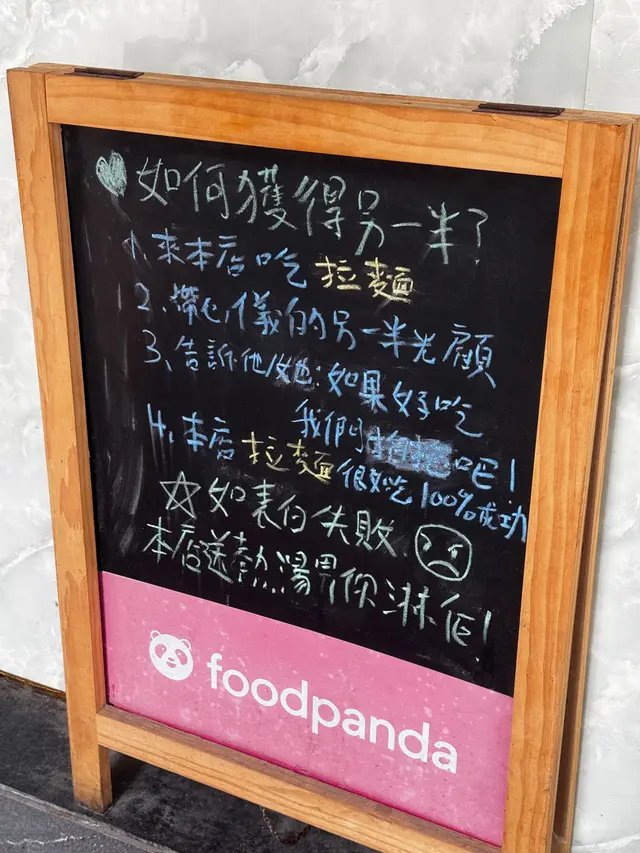 如何獲得另一半?
1、來本店吃拉麵
2、帶心儀的另一半光顧
3、告訴他/她:如果好吃
我們吧!
4、本店拉麵很好吃100%成功
如表白失敗
本店送熱湯畀你淋佢!
foodpanda